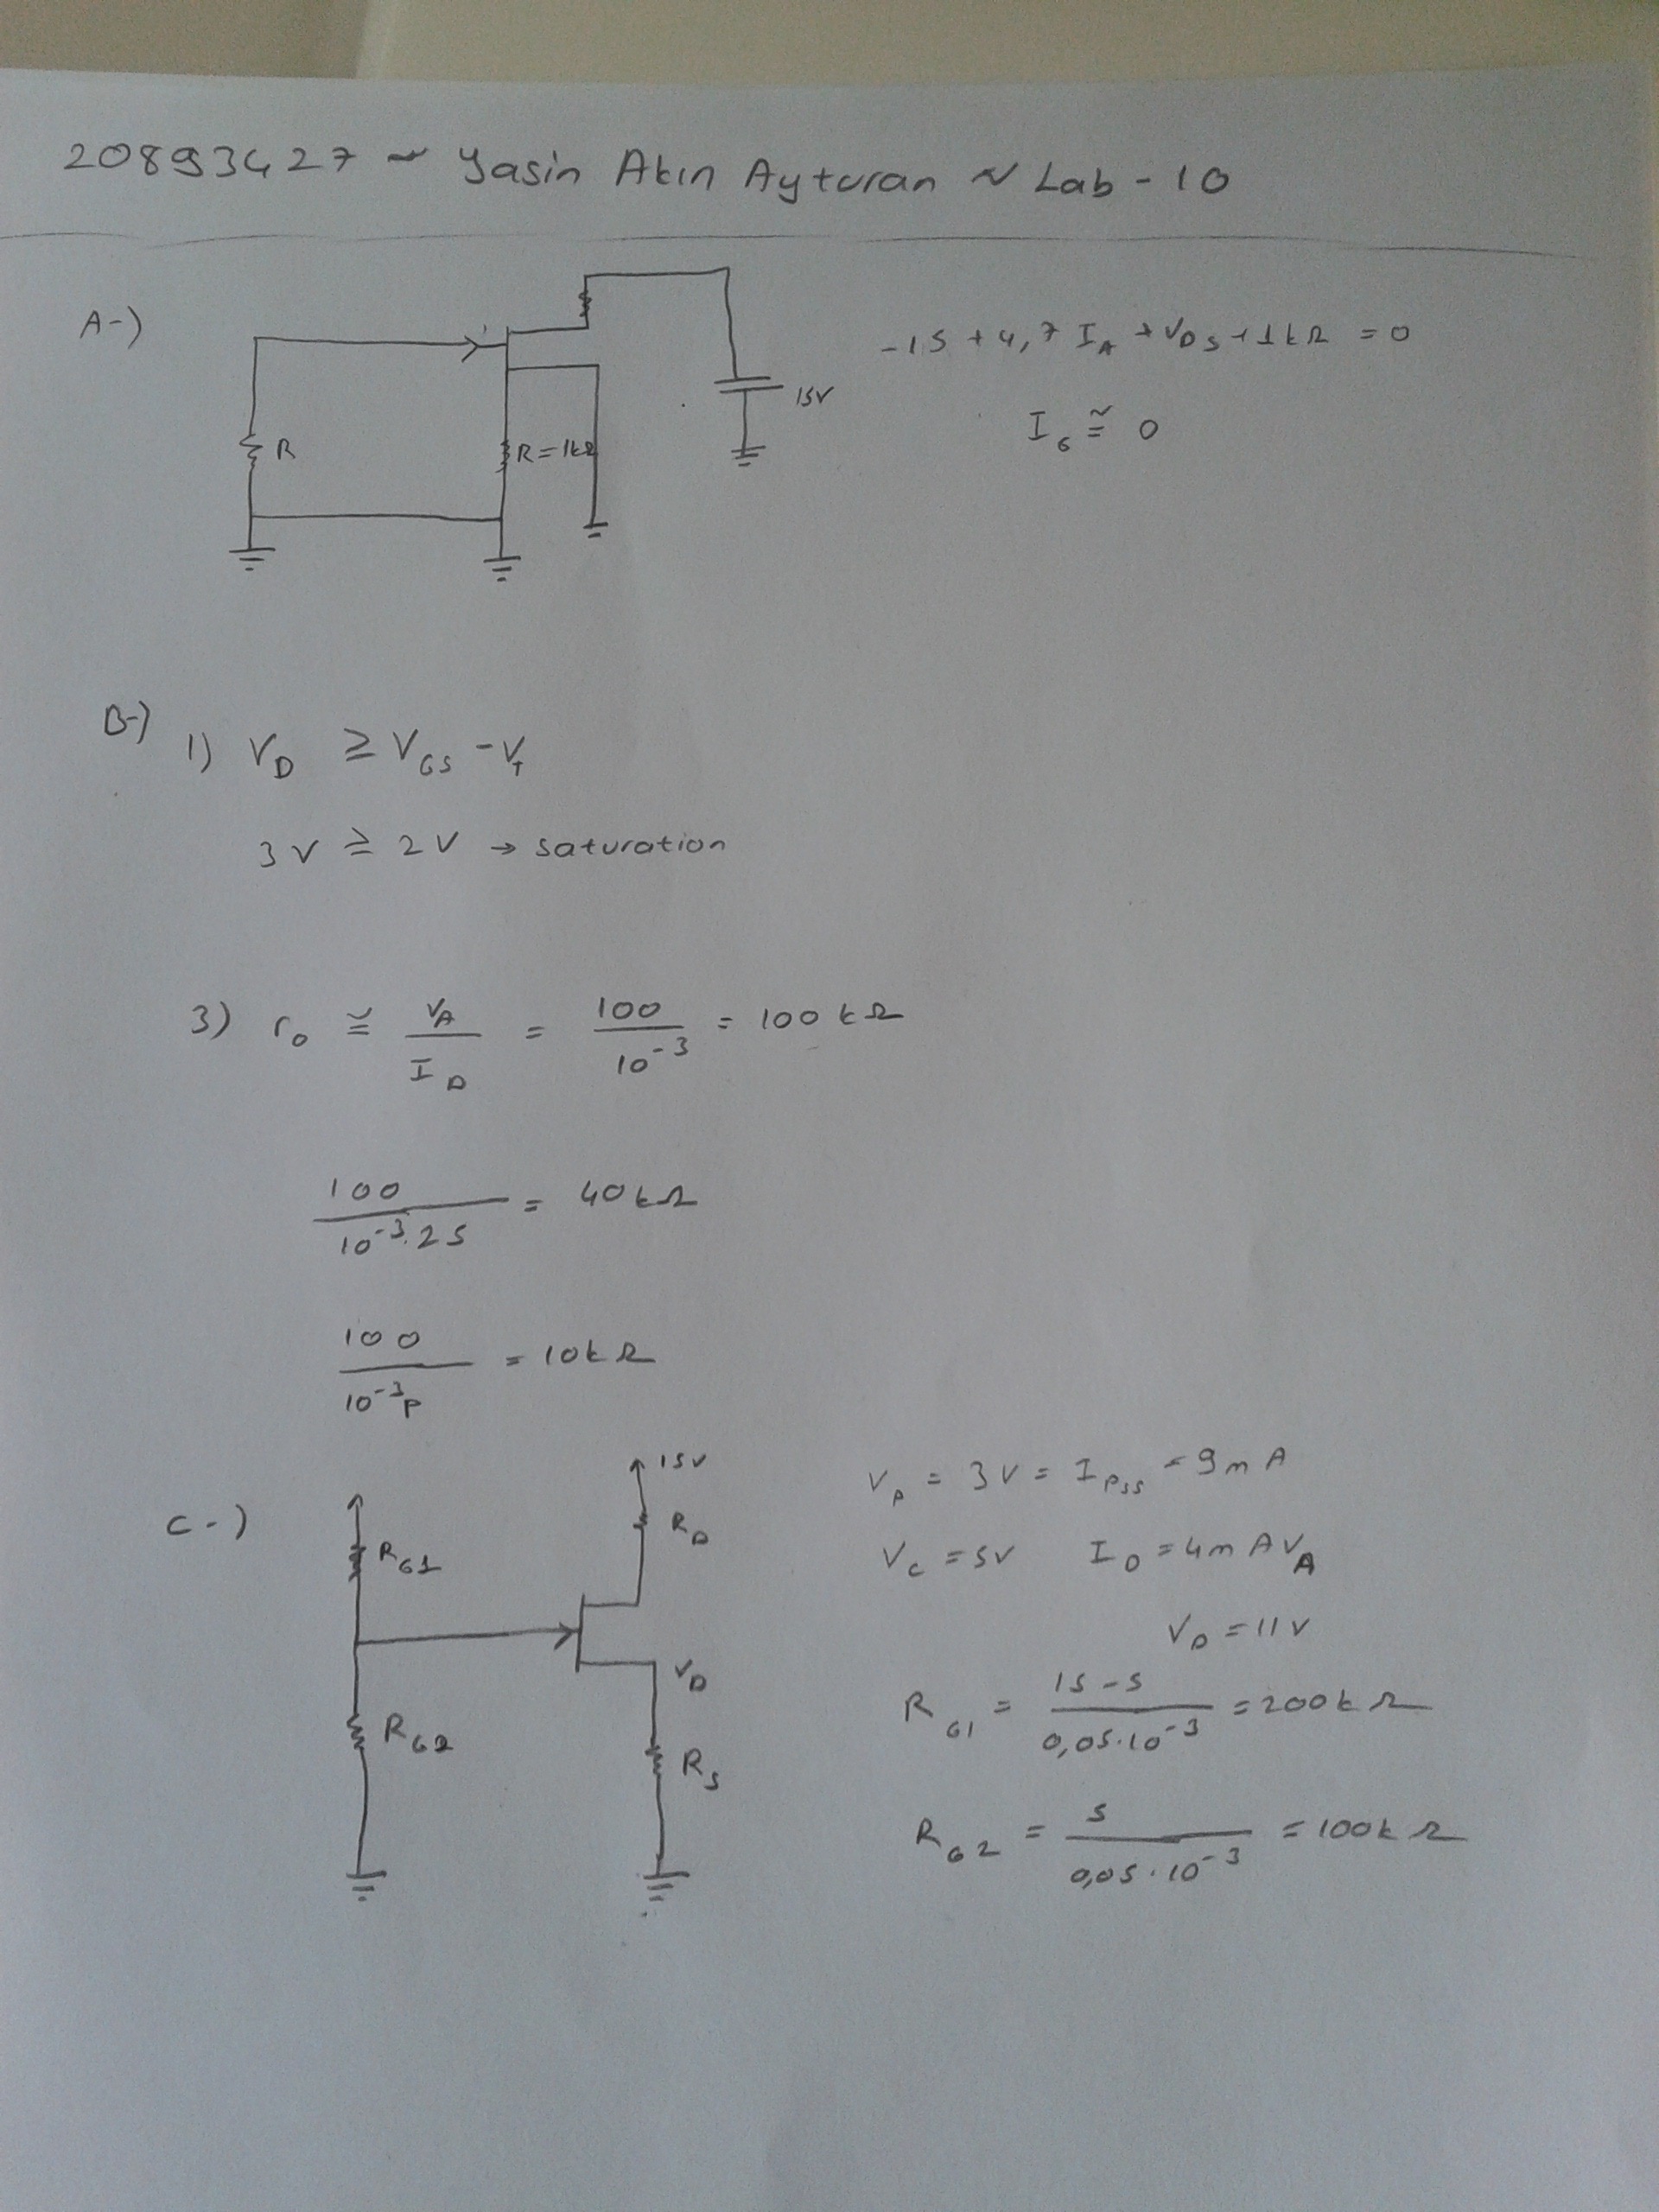 20893427 ~ Yasin Akın Ayturan ~ Lab - 10
A-)
-15 + 4,7 I_A + V_DS + 1kΩ = 0
15V
I_G ≅ 0
R
R = 1kΩ
B-)
1) V_D ≥ V_GS - V_T
3V ≥ 2V → saturation
3) r_o ≅ V_A / I_D = 100 / 10^-3 = 100 kΩ
100 / 10^-3.25 = 40kΩ
100 / 10^-3 p = 10kΩ
C-)
15V
R_D
R_G1
V_D
R_G2
R_S
V_p = 3V = I_PSS = 9mA
V_C = 5V I_D = 4mA V_A
V_D = 11V
R_G1 = 15-5 / 0,05.10^-3 = 200kΩ
R_G2 = 5 / 0,05.10^-3 = 100kΩ